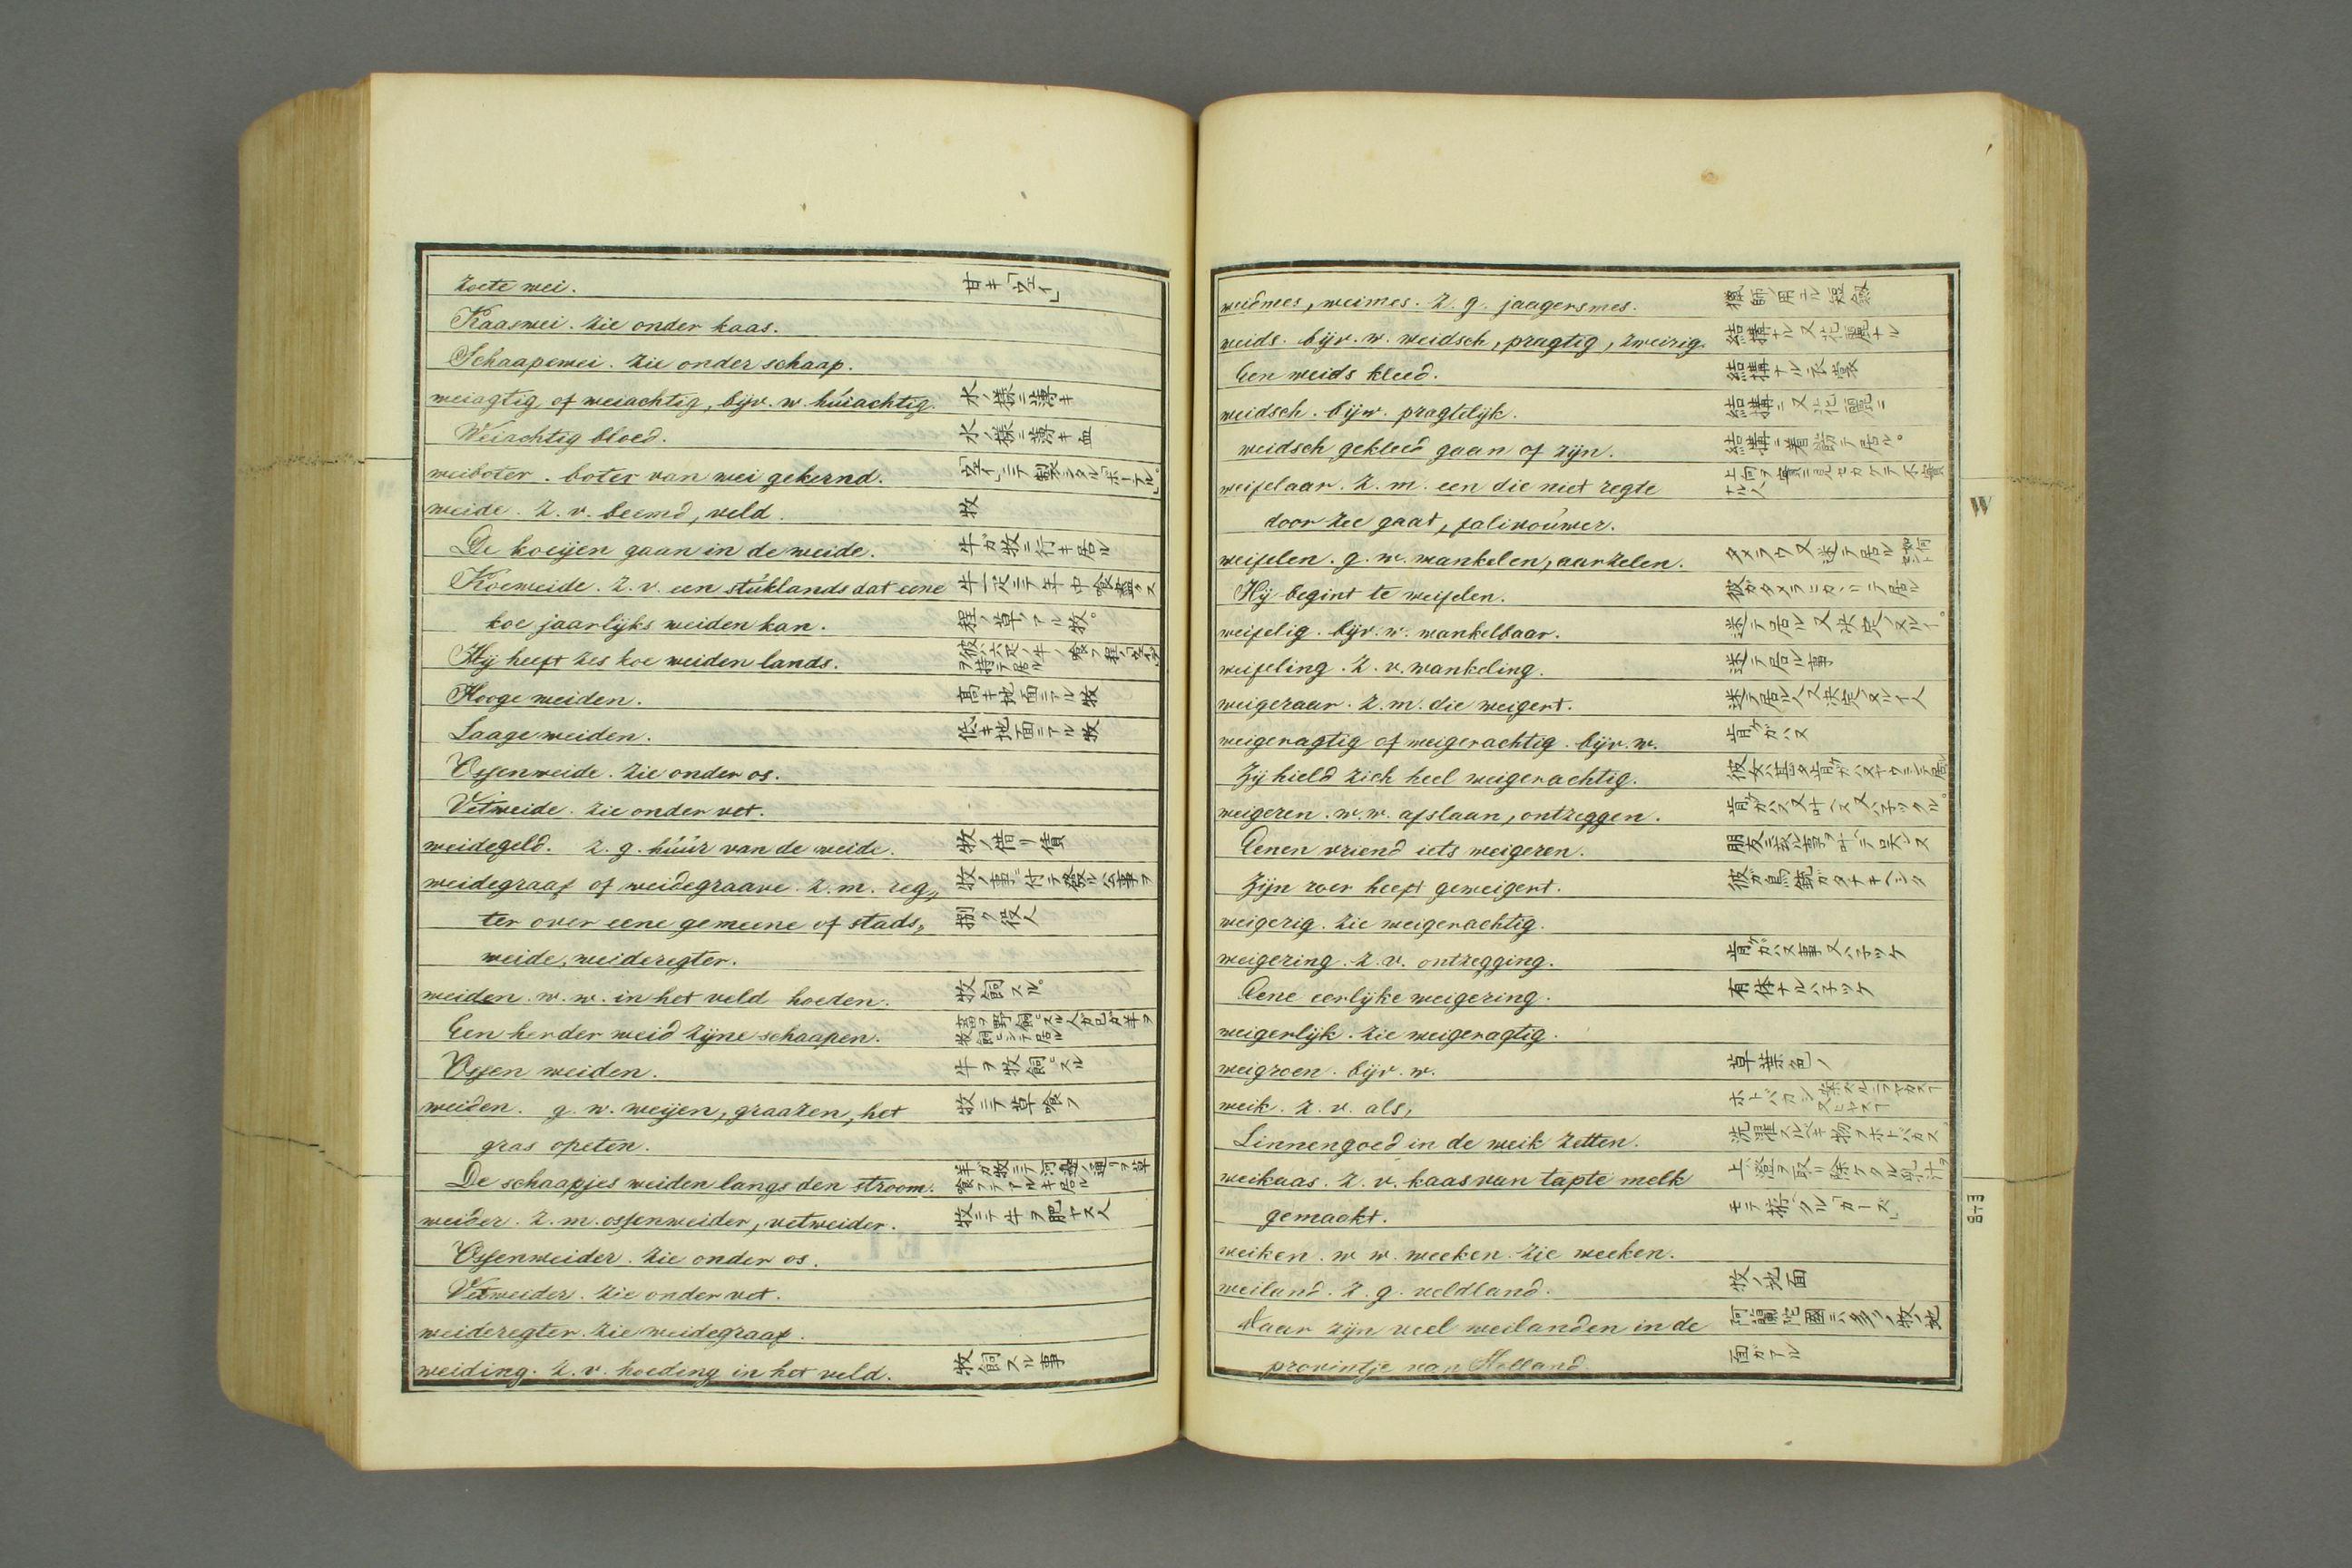 Zoete wei. 甘キ「ウェイ」
Kaaswei. Zie onder kaas.
Schaapewei. Zie onder schaap.
weiagtig, of weiachtig, bijv. w. húiachtig. 水ノ様ニ薄キ
Weiachtig bloed. 水ノ様ニ薄キ血
weiboter. boter van wei gekernd.
weide. Z. v. beemd, veld. 牧
De koeijen gaan in de weide. 牛ガ牧ニ行キ居ル
Koeweide. Z. v. een stúklands dat eene 牛一疋ニテ年中喰盡ス
koe jaarlijks weiden kan. 程ノ草ノアル牧。
Hij heeft zes koe weiden lands.
Hooge weiden. 高キ地面ニアル牧
Laage weiden. 低キ地面ニアル牧
Ossenweide. Zie onder os.
Vetweide. Zie onder vet.
weidegeld. Z. g. húúr van de weide. 牧ノ借リ賃
weidegraaf of weidegraave. Z. m. reg„ 牧ノ事ニ付テ發ル公事ヲ
ter over eene gemeene of stads„ 捌ク役人
weide, weideregter.
weiden. w. w. in het veld hoeden. 牧飼スル。
Een herder weid zijne schaapen.
Ossen weiden. 牛ヲ牧飼ヒスル
weiden. g. w. weijen, graazen, het 牧ニテ草喰フ
gras opeten.
De schaapjes weiden langs den stroom.
weider. Z. m. ossenweider, vetweider. 牧ニテ牛ヲ肥ヤス人
Ossenweider. Zie onder os.
Vetweider. Zie onder vet.
weideregter. Zie weidegraaf.
weiding. Z. v. hoeding in het veld. 牧飼スル事
weidmes, weimes. Z. g. jaagersmes. 獵師ノ用ユル短劔
weids. bijv. w. weidsch, pragtig, zweirig. 結構ナル又花麗ナル
Een weids kleed. 結構ナル衣裳
weidsch. bijw. pragtelijk. 結構ニ又花麗ニ
weidsch gekleed gaan of zijn. 結構ニ着飾テ居ル。
weifelaar. Z. m. een die niet regte
door zee gaat, falivoúwer.
weifelen. g. w. wankelen, aarzelen. タメラウ又迷テ居ル
Hij begint te weifelen.
weifelig. bijv. w. wankelbaar.
weifeling. Z. v. wankeling. 迷テ居ル事
weigeraar. Z. m. die weigert.
weigeragtig of weigerachtig. bijv. w. 肯ガハヌ
Zij hield zich heel weigerachtig.
weigeren. w. w. afslaan, ontzeggen.
Eenen vriend iets weigeren.
Zijn roer heeft geweigert.
weigerig. Zie weigerachtig.
weigering. Z. v. ontzegging. 肯ガハヌ事又ハ子ツケ
Eene eerlijke weigering. 有体ナルハ子ツケ
weigerlijk. Zie weigeragtig.
weigroen. bijv. w. 草葉色ノ
weik. Z. v. als,
Linnengoed in de weik zetten. 洗濯スルベキ物ヲホトバカス
weikaas. Z. v. kaas van tapte melk
gemaakt.
weiken. w. w. weeken. Zie weeken.
weiland. Z. g. veldland. 牧ノ地面
Daar zijn veel weilanden in de 阿蘭陀國ニハ多クノ牧ノ地
provintje van Holland. 面ガアル
W